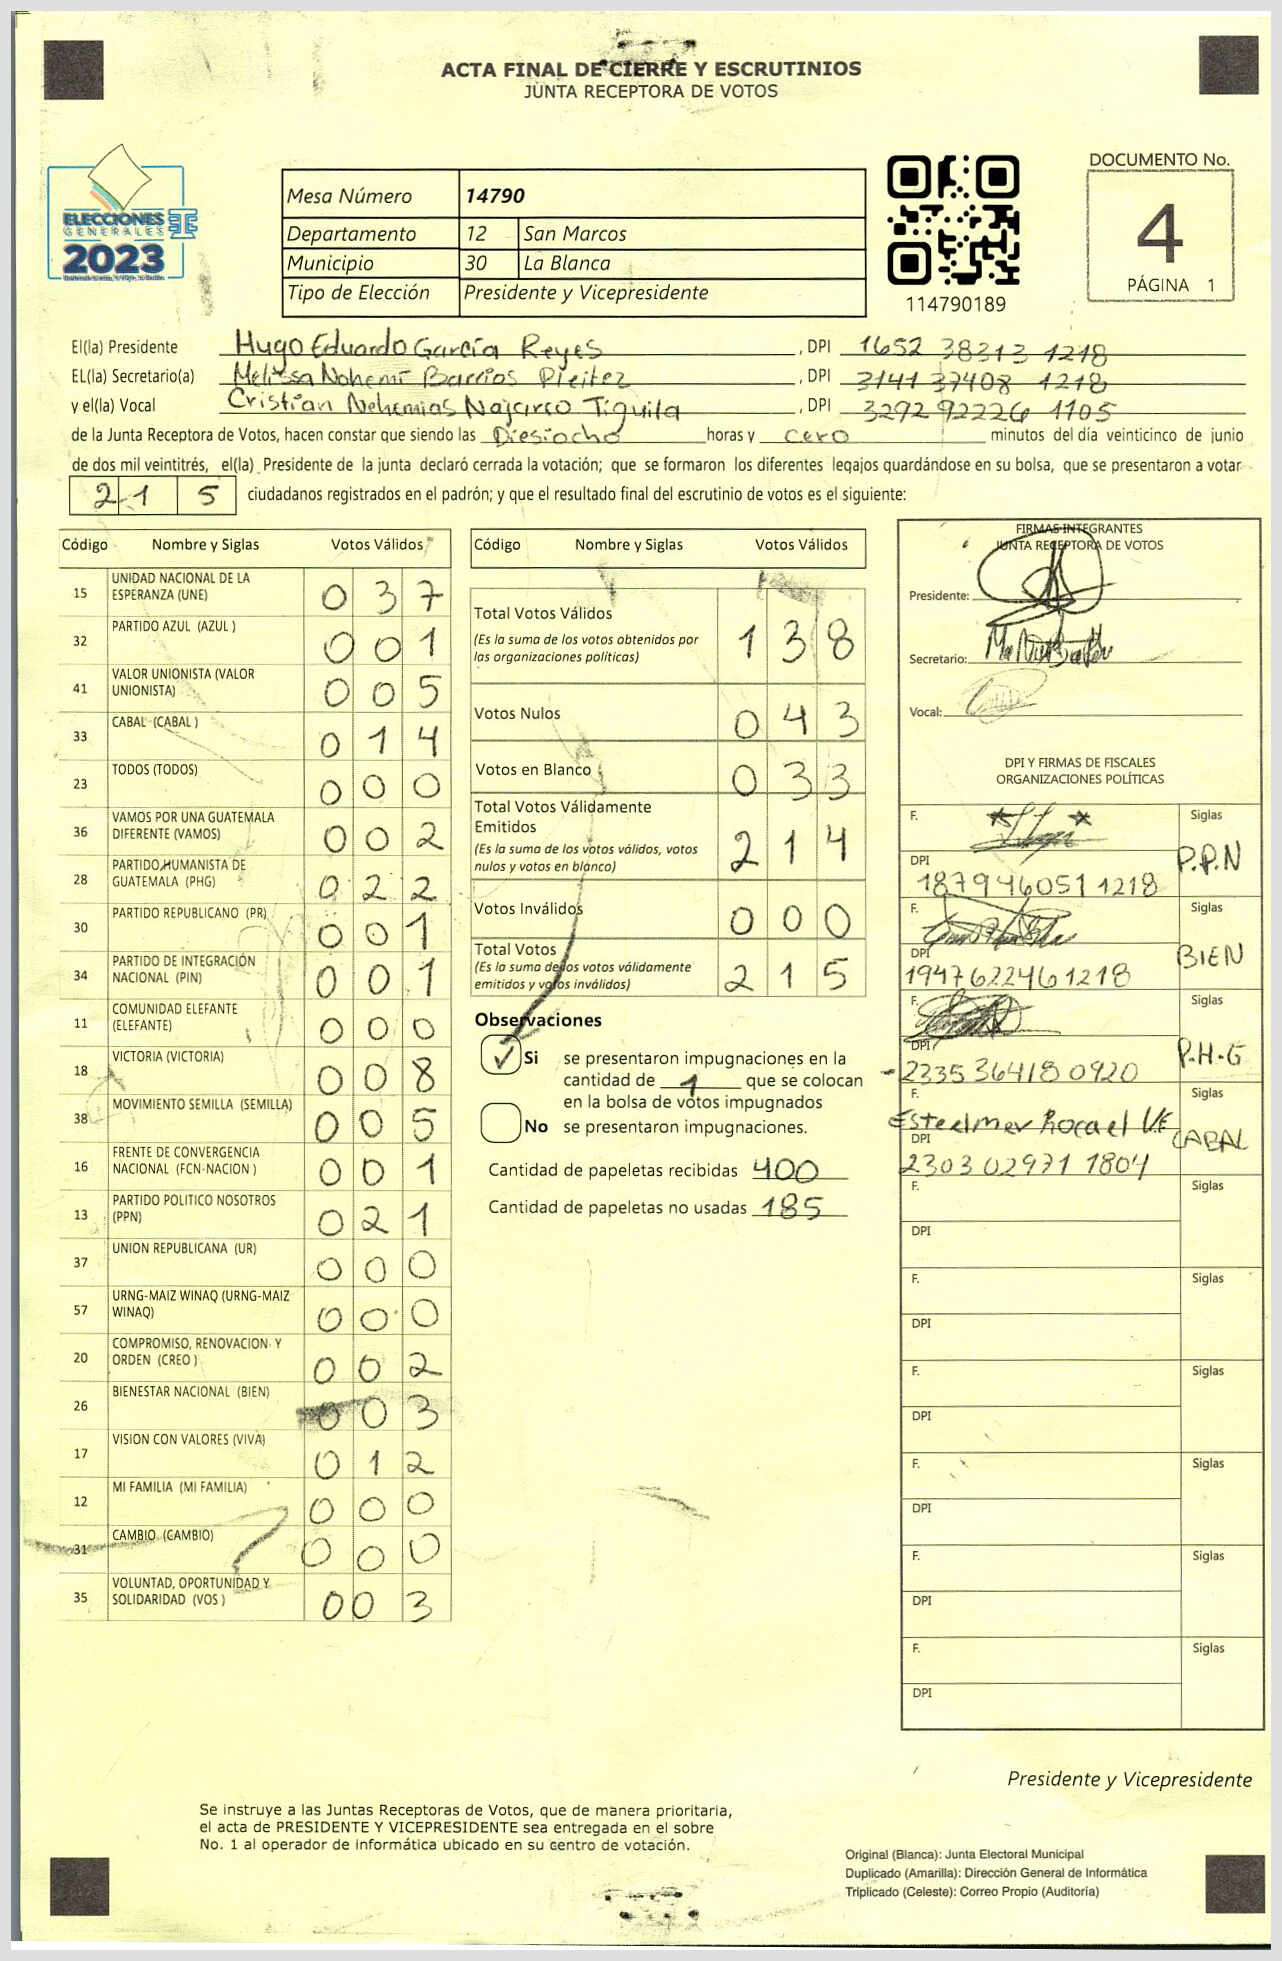 ACTA FINAL DE CIERRE Y ESCRUTINIOS
JUNTA RECEPTORA DE VOTOS
ELECCIONES
GENERALES
2023
Mesa Número 14790
Departamento 12 San Marcos
Municipio 30 La Blanca
Tipo de Elección Presidente y Vicepresidente
114790189
DOCUMENTO No.
4
PÁGINA 1
El(la) Presidente Hugo Eduardo García Reyes , DPI 1652 38313 1218
EL(la) Secretario(a) Melissa Nohemí Barrios Pleitez , DPI 3141 37408 1218
y el(la) Vocal Cristian Nehemias Najarro Tiguila , DPI 3292 92226 1105
de la Junta Receptora de Votos, hacen constar que siendo las Diesiocho horas y cero minutos del día veinticinco de junio
de dos mil veintitrés, el(la) Presidente de la junta declaró cerrada la votación; que se formaron los diferentes legajos guardándose en su bolsa, que se presentaron a votar
2 1 5 ciudadanos registrados en el padrón; y que el resultado final del escrutinio de votos es el siguiente:
Código Nombre y Siglas Votos Válidos
15 UNIDAD NACIONAL DE LA
ESPERANZA (UNE) 0 3 7
32 PARTIDO AZUL (AZUL ) 0 0 1
41 VALOR UNIONISTA (VALOR
UNIONISTA) 0 0 5
33 CABAL (CABAL ) 0 1 4
23 TODOS (TODOS) 0 0 0
36 VAMOS POR UNA GUATEMALA
DIFERENTE (VAMOS) 0 0 2
28 PARTIDO HUMANISTA DE
GUATEMALA (PHG) 0 2 2
30 PARTIDO REPUBLICANO (PR) 0 0 1
34 PARTIDO DE INTEGRACIÓN
NACIONAL (PIN) 0 0 1
11 COMUNIDAD ELEFANTE
(ELEFANTE) 0 0 0
18 VICTORIA (VICTORIA) 0 0 8
38 MOVIMIENTO SEMILLA (SEMILLA) 0 0 5
16 FRENTE DE CONVERGENCIA
NACIONAL (FCN-NACION ) 0 0 1
13 PARTIDO POLITICO NOSOTROS
(PPN) 0 2 1
37 UNION REPUBLICANA (UR) 0 0 0
57 URNG-MAIZ WINAQ (URNG-MAIZ
WINAQ) 0 0 0
20 COMPROMISO, RENOVACION Y
ORDEN (CREO ) 0 0 2
26 BIENESTAR NACIONAL (BIEN) 0 0 3
17 VISION CON VALORES (VIVA) 0 1 2
12 MI FAMILIA (MI FAMILIA) 0 0 0
31 CAMBIO (CAMBIO) 0 0 0
35 VOLUNTAD, OPORTUNIDAD Y
SOLIDARIDAD (VOS ) 0 0 3
Código Nombre y Siglas Votos Válidos
Total Votos Válidos
(Es la suma de los votos obtenidos por
las organizaciones políticas) 1 3 8
Votos Nulos 0 4 3
Votos en Blanco 0 3 3
Total Votos Válidamente
Emitidos
(Es la suma de los votos válidos, votos
nulos y votos en blanco) 2 1 4
Votos Inválidos 0 0 0
Total Votos
(Es la suma de los votos válidamente
emitidos y votos inválidos) 2 1 5
Observaciones
Si se presentaron impugnaciones en la
cantidad de 1 que se colocan
en la bolsa de votos impugnados
No se presentaron impugnaciones.
Cantidad de papeletas recibidas 400
Cantidad de papeletas no usadas 185
FIRMAS INTEGRANTES
JUNTA RECEPTORA DE VOTOS
Presidente:
Secretario:
Vocal:
DPI Y FIRMAS DE FISCALES
ORGANIZACIONES POLÍTICAS
F. Siglas
P.P.N
DPI
1879460511218
F. Siglas
BIEN
DPI
1947622461218
F. Siglas
P.H.G
DPI
2235 36418 0920
F. Siglas
Esteelmer Rocael V.E
CABAL
DPI
2303 02971 1804
F. Siglas
DPI
F. Siglas
DPI
F. Siglas
DPI
F. Siglas
DPI
F. Siglas
DPI
F. Siglas
DPI
Presidente y Vicepresidente
Se instruye a las Juntas Receptoras de Votos, que de manera prioritaria,
el acta de PRESIDENTE Y VICEPRESIDENTE sea entregada en el sobre
No. 1 al operador de informática ubicado en su centro de votación.
Original (Blanca): Junta Electoral Municipal
Duplicado (Amarilla): Dirección General de Informática
Triplicado (Celeste): Correo Propio (Auditoría)